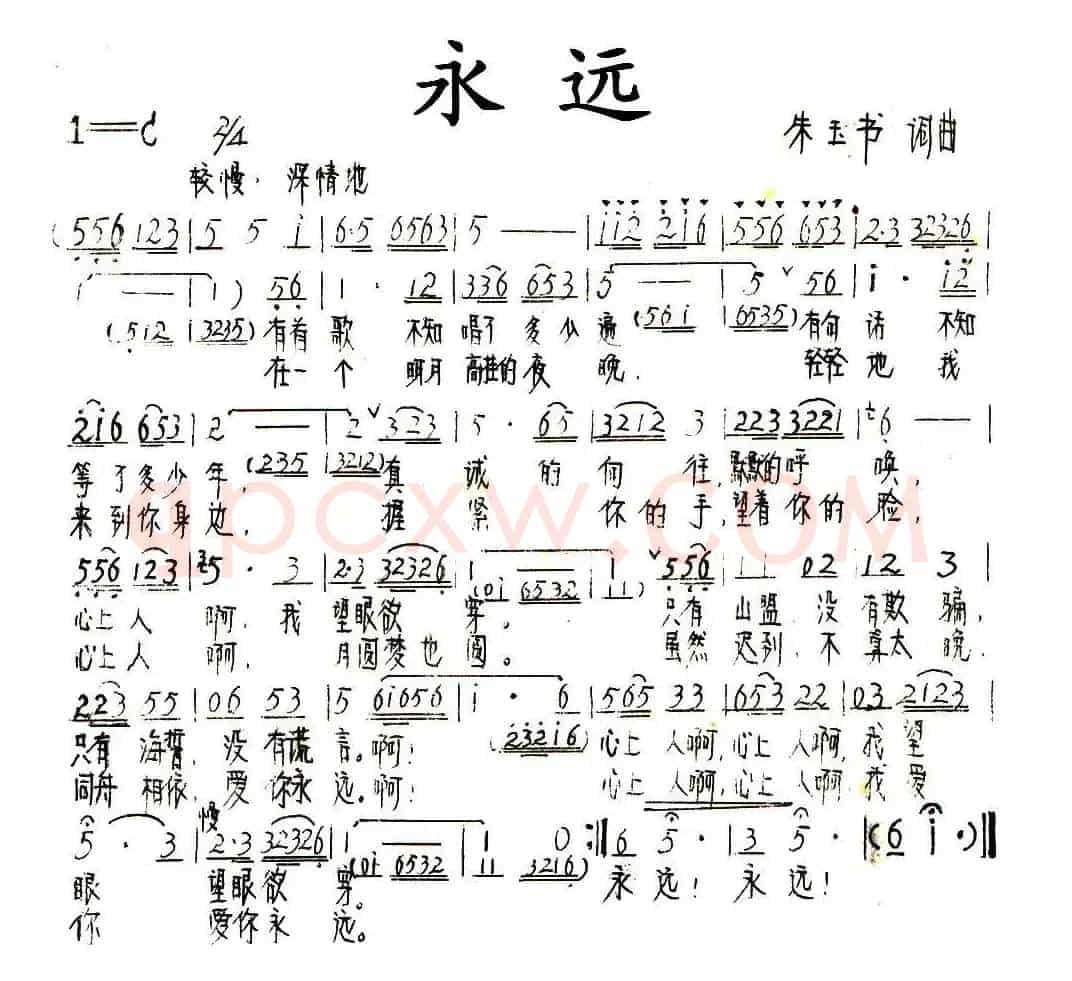 永远
1=C 2/4
朱玉书 词曲
较慢. 深情地
(556 123 | 5 5 i | 6·5 0563 | 5 — — | ii2 2i6 | 556 653 | 2·3 32326 |
i — — | 1) 56 | 1· 12 | 336 653 | 5 — — | 5 ˅ 56 | i· i2 |
(512 | 3235) 有首歌 不知唱了多少遍 (561 | 6535) 有句话 不知
在一个 明月高挂的夜晚. 轻轻地我
2i6 653 | 2 — — | 2 ˅ 323 | 5· 65 | 3212 3 | 223 3221 | 6 — — |
等了多少年, (235 | 3212) 真诚的向往, 默默的呼唤,
来到你身边, 握紧你的手, 望着你的脸,
556 123 | 5· 3 | 2·3 32326 | 1 — — | ˅ 556 | 11 02 | 12 3 |
(0i 6532 | 11)
心上人啊, 我望眼欲穿。 只有山盟, 没有欺骗,
心上人啊, 月圆梦也圆。 虽然迟到, 不算太晚,
223 55 | 06 53 | 5 6i056 | i· 6 | 565 33 | 653 22 | 03 2123 |
只有海誓, 没有谎言。啊! (23216) 心上人啊, 心上人啊, 我望
同舟相依, 爱你永远。啊! 心上人啊, 心上人啊, 我爱
慢
5· 3 | 2·3 32326 | 1 — — | 1 0 :‖ 6 5· | 3 5· | (6 i·) ‖
眼 望眼欲穿。 (0i 6532 | 11 3216) 永远! 永远!
你 爱你永远。
qpcxw.com